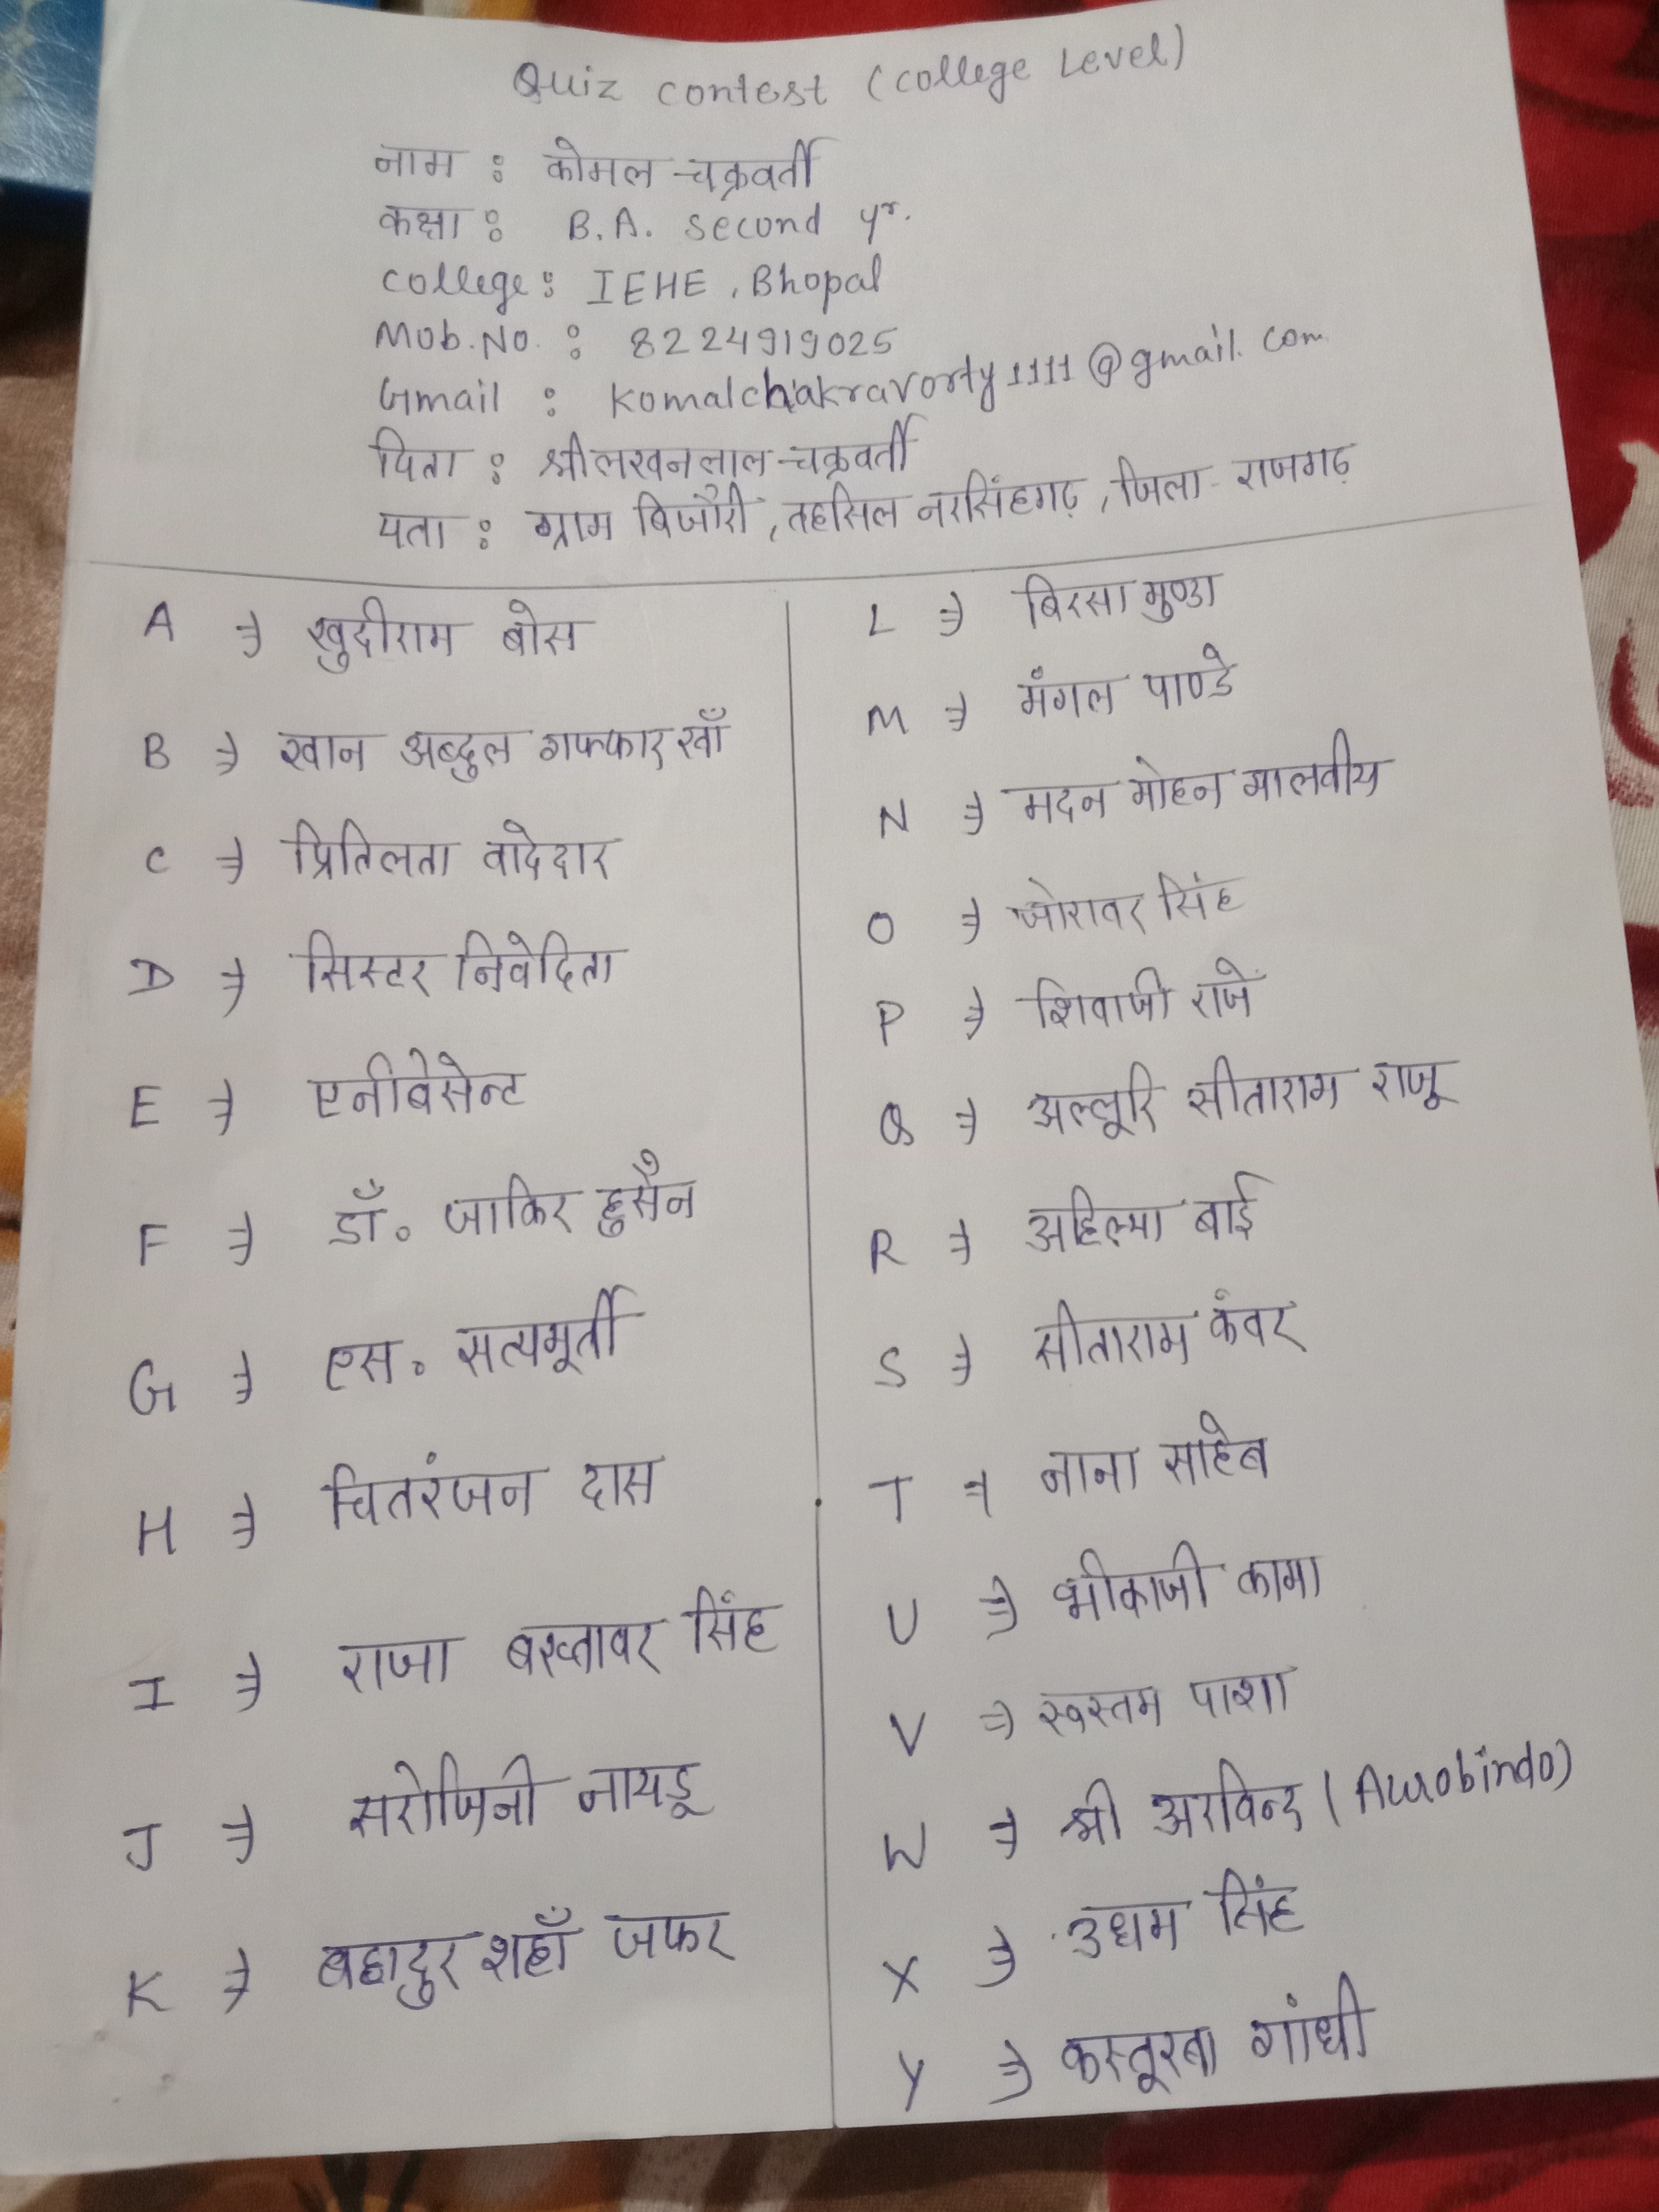 Quiz contest (college Level)
नाम : कोमल चक्रवर्ती
कक्षा : B.A. second yr.
college : IEHE, Bhopal
Mob.No. : 8224919025
Gmail : Komalchakravorty1111@gmail.com
पिता : श्री लखनलाल चक्रवर्ती
पता : ग्राम बिजौरी, तहसिल नरसिंहगढ़, जिला- राजगढ़
A ⇒ खुदीराम बोस
B ⇒ खान अब्दुल गफ्फार खाँ
C ⇒ प्रितिलता वादेदार
D ⇒ सिस्टर निवेदिता
E ⇒ एनीबेसेन्ट
F ⇒ डाँ. जाकिर हुसैन
G ⇒ एस. सत्यमूर्ती
H ⇒ चितरंजन दास
I ⇒ राजा बख्तावर सिंह
J ⇒ सरोजिनी नायडू
K ⇒ बहादुर शहाँ जफर
L ⇒ बिरसा मुण्डा
M ⇒ मंगल पाण्डे
N ⇒ मदन मोहन मालवीय
O ⇒ जोरावर सिंह
P ⇒ शिवाजी राजे
Q ⇒ अल्लूरि सीताराम राजू
R ⇒ अहिल्या बाई
S ⇒ सीताराम कंवर
T ⇒ नाना साहेब
U ⇒ भीकाजी कामा
V ⇒ रूस्तम पाशा
W ⇒ श्री अरविन्द (Aurobindo)
X ⇒ उधम सिंह
Y ⇒ कस्तूरबा गांधी